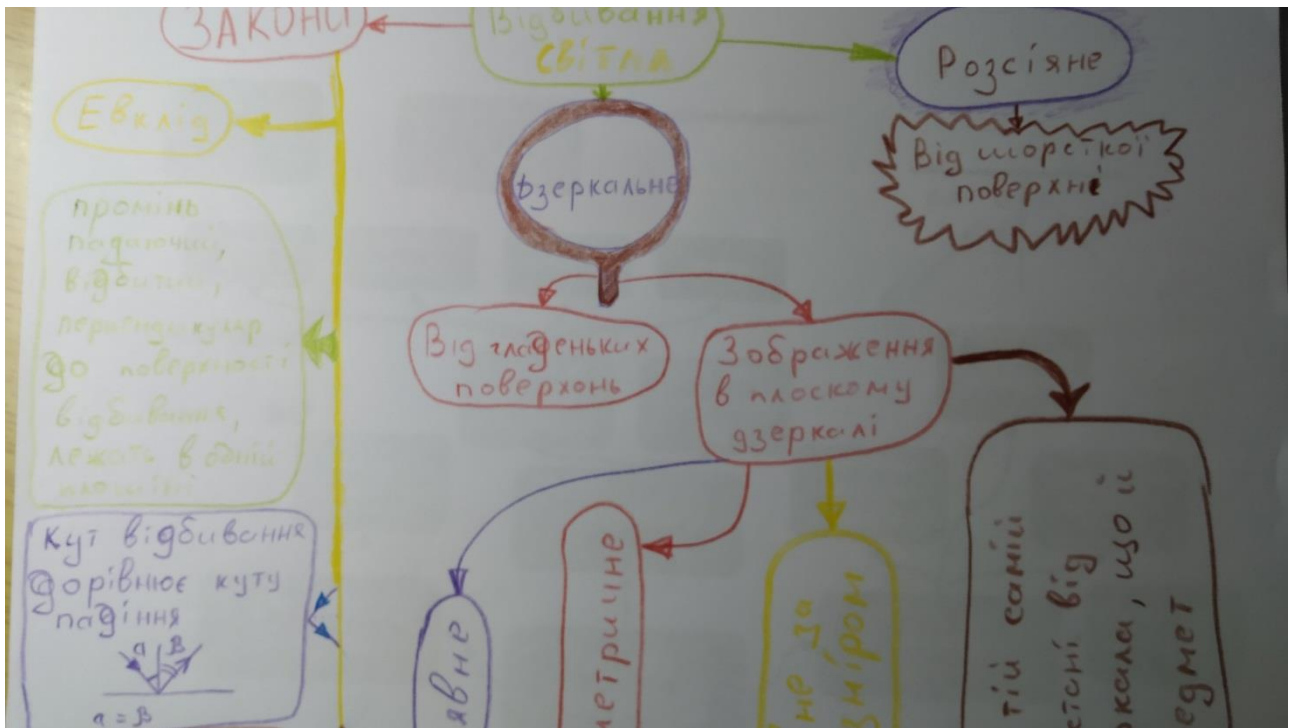 ЗАКОНИ
Відбивання
світла
Розсіяне
Евклід
Від шорсткої
поверхні
дзеркальне
промінь
падаючий,
відбитий,
перпендикуляр
до поверхності
відбивання,
лежать в одній
площині
Від гладеньких
поверхонь
Зображення
в плоскому
дзеркалі
кут відбивання
дорівнює куту
падіння
a β
a = β
явне
метричне
не за
зміром
тій самій
стані від
кала, що й
едмет